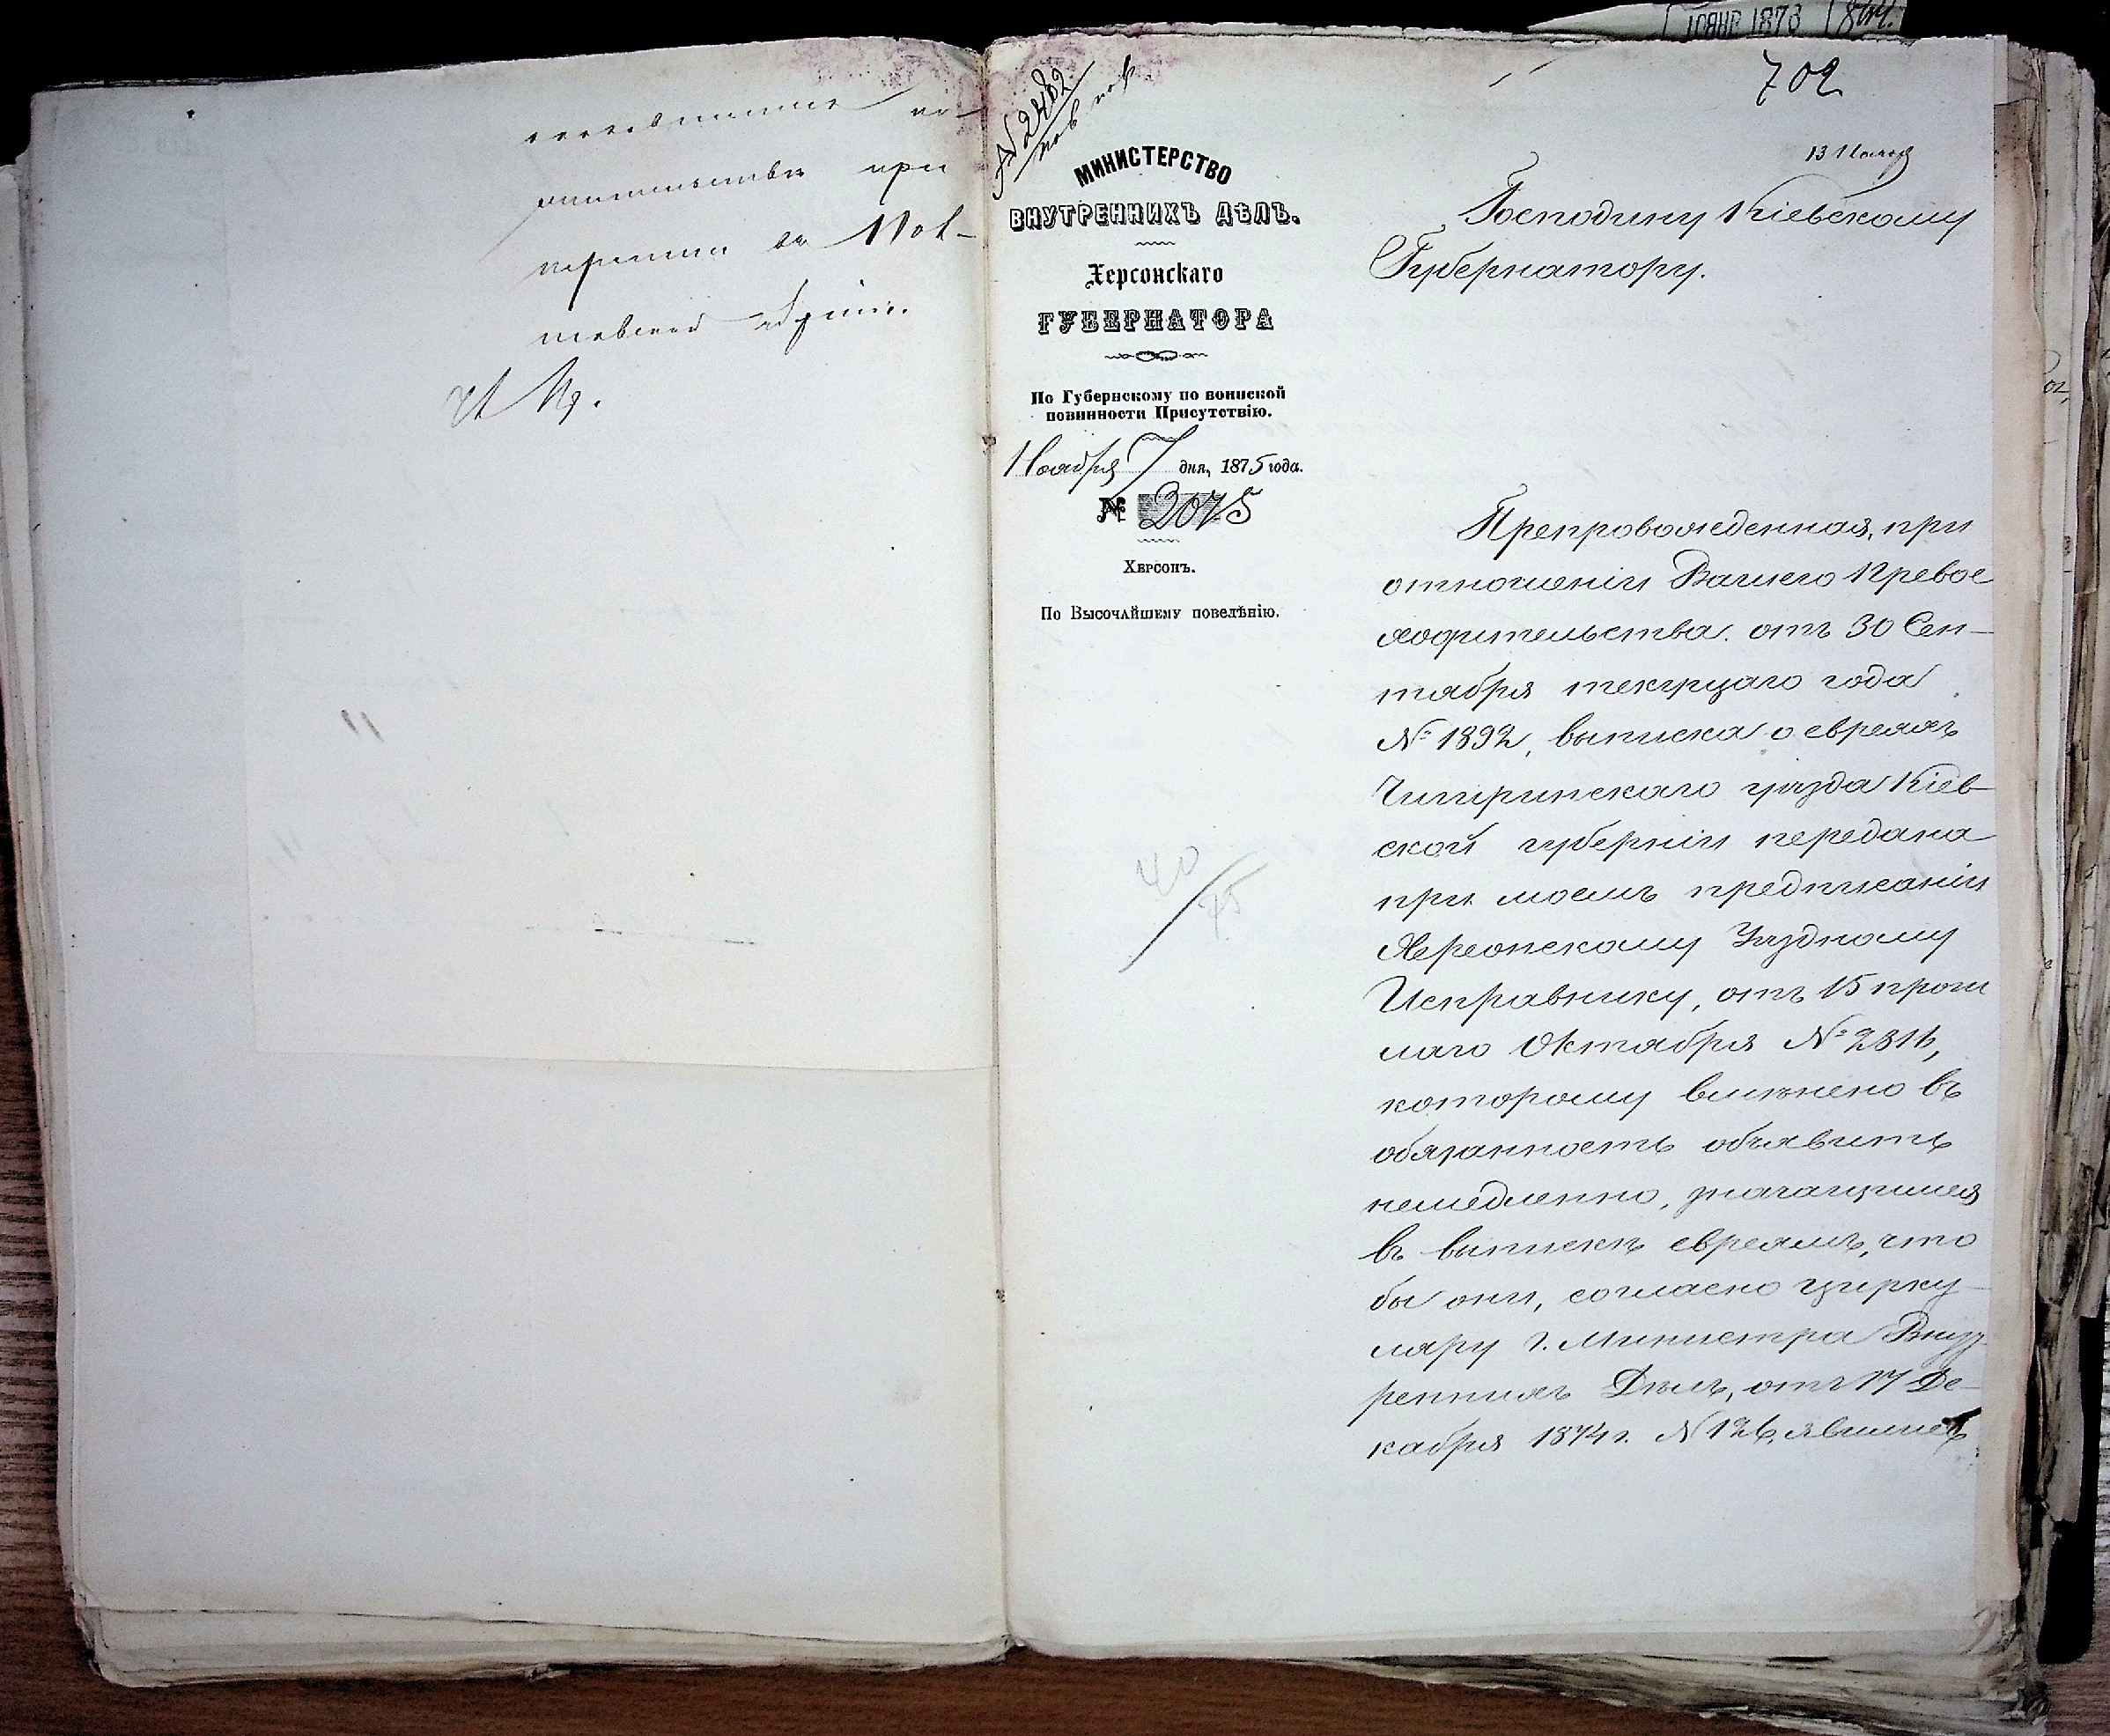 при
№ 2482
702
13 Ноября
МИНИСТЕРСТВО
ВНУТРЕННИХЪ ДѢЛЪ.
Херсонскаго
ГУБЕРНАТОРА
По Губернскому по воинской
повинности Присутствію.
Ноября 7 дня, 1875 года.
№ 2075
Херсонъ.
По Высочайшему повелѣнію.
40/75
Господину Кіевскому
Губернатору.
Препровожденная, при
отношеніи Вашего Превос
ходительства отъ 30 Сен-
тября текущаго года
№ 1892, выписка о евреяхъ
Чигиринскаго уѣзда Кіев-
ской губерніи передана
при моемъ предписаніи
Херсонскому Уѣздному
Исправнику, отъ 15 прош
лаго Октября № 2816,
которому вмѣнено въ
обязанность объявить
немедленно, значащимся
въ выпискѣ евреямъ, что
бы они, согласно цирку-
ляру г. Министра Внут-
реннихъ Дѣлъ, отъ 17 Де-
кабря 1874 г. № 126, явились